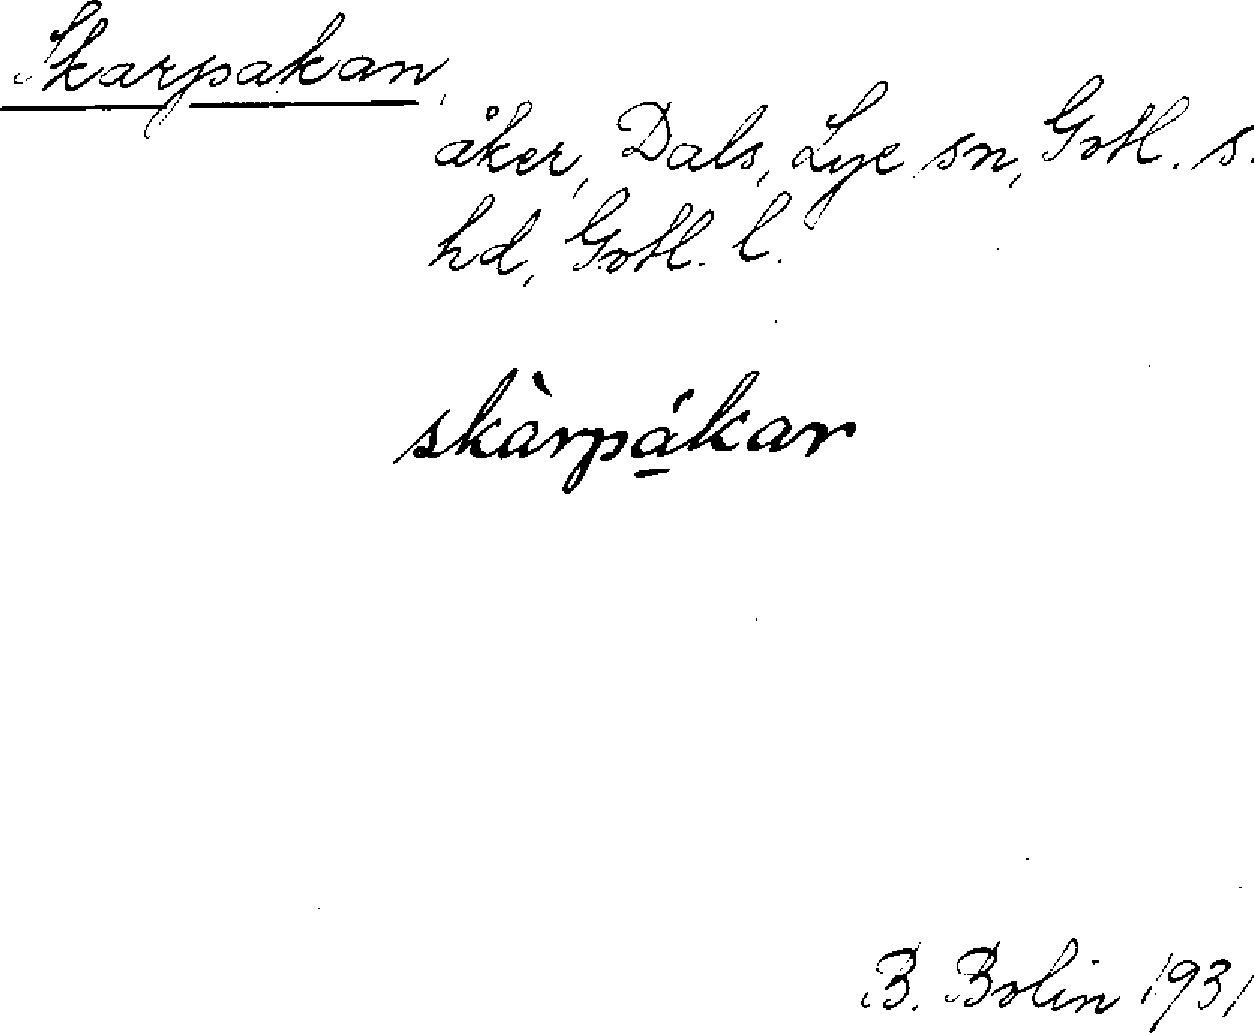 Skarpakan,
åker, Dals, Lye sn, Gotl. s.
hd, Gotl. l.
skàrpá̱kar
B. Bolin 1931